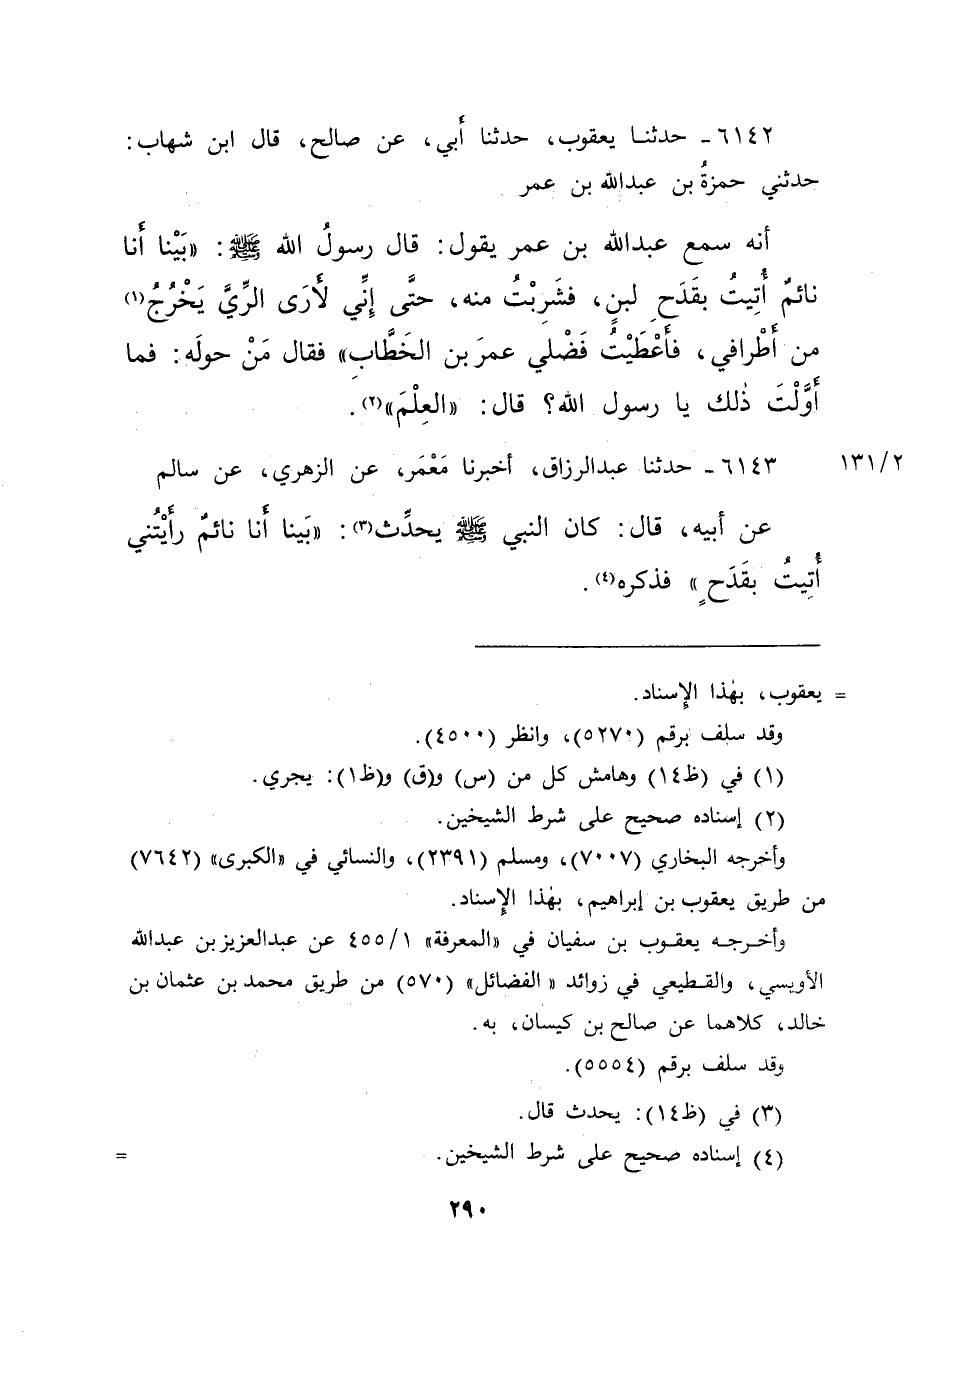 ٦١٤٢ـ حدثنـا يعقوب، حدثنا أَبي، عن صالح، قال ابن شهاب:
حدثني حمزةُ بن عبدالله بن عمر
أنه سمع عبدالله بن عمر يقول: قال رسولُ الله ﷺ: «بَيْنا أَنا
نائمٌ أُتِيتُ بقَدَحِ لبنٍ، فشَرِبْتُ منه، حتَّى إِنِّي لأَرَى الرِّيَّ يَخْرُجُ(١)
من أَطْرافي، فأَعْطَيْتُ فَضْلي عمرَ بن الخَطَّابِ» فقال مَنْ حولَه: فما
أَوَّلْتَ ذٰلك يا رسول الله؟ قال: «العِلْمَ»(٢).
٦١٤٣ـ حدثنا عبدالرزاق، أخبرنا مَعْمَر، عن الزهري، عن سالم
١٣١/٢
عن أبيه، قال: كان النبي ﷺ يحدِّث(٣): «بَينا أَنا نائمٌ رأَيْتُني
أُتِيتُ بقَدَحٍ» فذكره(٤).
= يعقوب، بهٰذا الإِسناد.
وقد سلف برقم (٥٢٧٠)، وانظر (٤٥٠٠).
(١) في (ظ١٤) وهامش كل من (س) و(ق) و(ظ١): يجري.
(٢) إسناده صحيح على شرط الشيخين.
وأخرجه البخاري (٧٠٠٧)، ومسلم (٢٣٩١)، والنسائي في «الكبرى» (٧٦٤٢)
من طريق يعقوب بن إبراهيم، بهٰذا الإِسناد.
وأخـرجـه يعقـوب بن سفيان في «المعرفة» ٤٥٥/١ عن عبدالعزيز بن عبدالله
الأويسي، والقـطيعي في زوائد «الفضائل» (٥٧٠) من طريق محمد بن عثمان بن
خالد، كلاهما عن صالح بن كيسان، به.
وقد سلف برقم (٥٥٥٤).
(٣) في (ظ١٤): يحدث قال.
(٤) إسناده صحيح على شرط الشيخين. =
٢٩٠